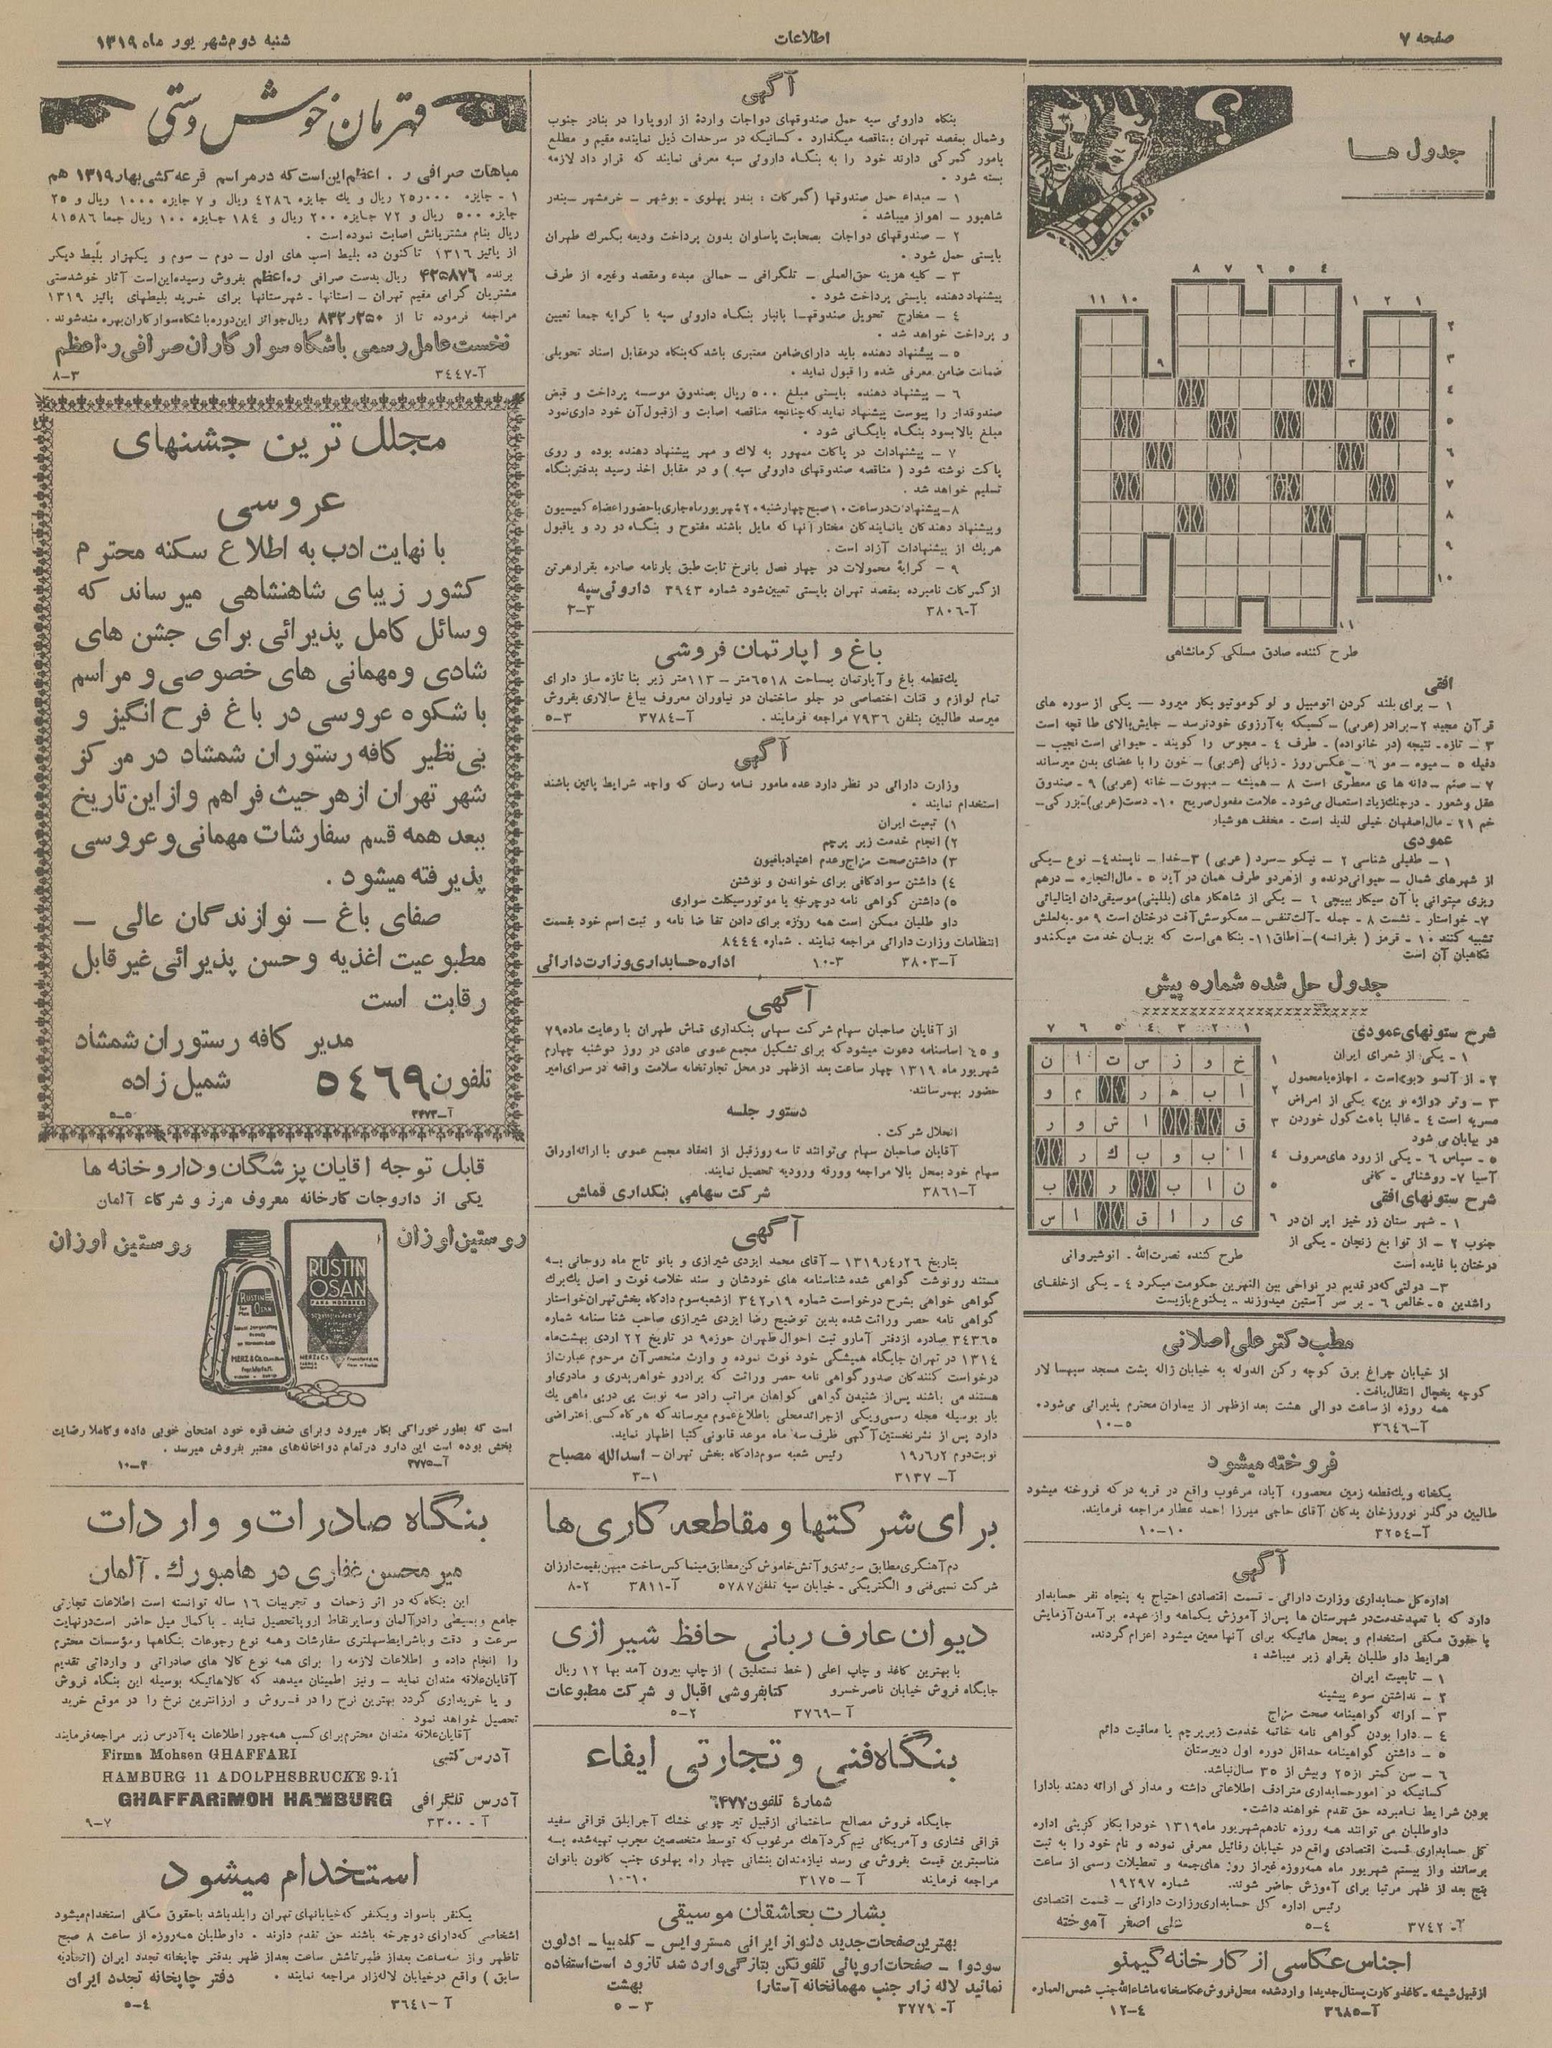 صفحه ۷
اطلاعات
شنبه دوم شهریور ماه ۱۳۱۹
جدول ها
طرح کننده صادق مسلکی کرمانشاهی
افقی
۱ - برای بلند کردن اتومبیل و لوکوموتیو بکار میرود - یکی از سوره های
قرآن مجید ۲- برادر (عربی) - کسیکه به آرزوی خود نرسد - جایش بالای طاقچه است
۳ - تازه - نتیجه (در خانواده) - طرف ۴ - مجوس را گویند - حیوانی است نجیب -
دقیقه ۵ - میوه - مو ۶ - عکس روز - زبانی (عربی) - خون را با عضای بدن میرساند
۷ - صنم - دانه ها ی معطری است ۸ - همیشه - مبهوت - خانه (عربی) ۹ - صندوق
عقل و شعور - در جنگ زیاد استعمال می‌شود - علامت مفعول صریح ۱۰ - دست (عربی) - بزرگی -
خم ۲۱ - مال اصفهان خیلی لذیذ است - مخفف هوشیار
عمودی
۱ - طفیلی شناسی ۲ - نیکو - سرد (عربی) ۳ - خدا - ناپسند ۴ - نوع - یکی
از شهرهای شمال - حیوانی درنده و از هر دو طرف همان در آید ۵ - مال التجاره - درهم
ریزی میتوانی با آن سیگار بپیچی ۶ - یکی از شاهکار های (بللینی) موسیقی دان ایتالیائی
۷ - خواستار - نشست ۸ - جمله - آلت تنفس - معکوسش آفت درختان است ۹ مو - به لعلش
تشبیه کنند ۱۰ - قرمز (بفرانسه) - اطاق ۱۱ - بنگاهی است که بزبان خدمت میکند و
نگاهبان آن است
جدول حل شده شماره پیش
۷ ۶ ۵ ۴ ۳ ۲ ۱
خ و ز س ت ا ن
ا ب ه ر م و
ق ا ش و ر
ا ب و ب ک ر
ن ا ب ر ب
ی ر ا ق ا س
طرح کننده نصرت‌الله - انوشیروانی
شرح ستونهای عمودی
۱ - یکی از شعرای ایران
۲ - از آنسو «بو» است - اجازه با محمول
۳ - وتر «واژه نو بن» یکی از امراض
مسریه است ۴ - غالبا باعث گول خوردن
در بیابان می شود
۵ - سپاس ۶ - یکی از رود های معروف
آسیا ۷ - روشنائی - کافی
شرح ستونهای افقی
۱ - شهر ستان زر خیز ایران در
جنوب ۲ - از توابع زنجان - یکی از
درختان با فایده است
۳ - دولتی که در قدیم در نواحی بین النهرین حکومت میکرد ۴ - یکی از خلفای
راشدین ۵ - خالص ۶ - بر سر آستین میدوزند - یکنوع بازیست
مطب دکتر علی اصلانی
از خیابان چراغ برق کوچه رکن الدوله به خیابان ژاله پشت مسجد سپهسا لار
کوچه یخچال انتقال یافت.
همه روزه از ساعت دو الی هشت بعد از ظهر از بیماران محترم پذیرائی می‌شود.
آ-۳۶۴۶ ۵-۱۰
فروخته میشود
یکخانه و یک قطعه زمین محصور، آباد، مرغوب واقع در قریه درکه فروخته میشود
طالبین در گذر نوروزخان بدکان آقای حاجی میرزا احمد عطار مراجعه فرمایند.
آ-۳۲۵۴ ۱۰-۱۰
آگهی
اداره کل حسابداری وزارت دارائی - قسمت اقتصادی احتیاج به پنجاه نفر حسابدار
دارد که با تعهد خدمت در شهرستان ها پس از آموزش یکماهه و از عهده بر آمدن آزمایش
با حقوق مکفی استخدام و بمحل هائیکه برای آنها معین میشود اعزام گردند.
شرایط داو طلبان بقرار زیر میباشد :
۱ - تابعیت ایران
۲ - نداشتن سوء پیشینه
۳ - ارائه گواهینامه صحت مزاج
۴ - دارا بودن گواهی نامه خاتمه خدمت زیر پرچم یا معافیت دائم
۵ - داشتن گواهینامه حداقل دوره اول دبیرستان
۶ - سن کمتر از ۲۵ و بیش از ۳۵ سال نباشد.
کسانیکه در امور حسابداری مترادف اطلاعاتی داشته و مدارکی ارائه دهند با دارا
بودن شرایط نامبرده حق تقدم خواهند داشت.
داوطلبان می توانند همه روزه تا دهم شهریور ماه ۱۳۱۹ خود را بکار گزینی اداره
کل حسابداری قسمت اقتصادی واقع در خیابان رفائیل معرفی نموده و نام خود را به ثبت
برسانند و از بیستم شهریور ماه همه روزه غیر از روز های جمعه و تعطیلات رسمی از ساعت
پنج بعد از ظهر مرتبا برای آموزش حاضر شوند. شماره ۱۹۲۹۷
رئیس اداره کل حسابداری وزارت دارائی - قسمت اقتصادی
آ- ۳۷۴۲ ۴-۵ علی اصغر آموخته
اجناس عکاسی از کارخانه گیمنو
از قبیل شیشه - کاغذ و کارت پستال جدیدا وارد شده محل فروش عکاسخانه ماشاءالله جنب شمس العماره
آ-۳۶۸۵ ۴-۱۲
آگهی
بنگاه داروئی سپه حمل صندوقهای دواجات واردۀ از اروپا را در بنادر جنوب
و شمال بمقصد تهران بمناقصه میگذارد . کسانیکه در سرحدات ذیل نماینده مقیم و مطلع
بامور گمرکی دارند خود را به بنگاه داروئی سپه معرفی نمایند که قرار داد لازمه
بسته شود .
۱ - مبداء حمل صندوقها (گمرکات : بندر پهلوی - بوشهر - خرمشهر - بندر
شاهپور - اهواز میباشد .
۲ - صندوقهای دواجات بصحابت پاساوان بدون پرداخت ودیعه بگمرک طهران
بایستی حمل شود .
۳ - کلیه هزینه حق العملی - تلگرافی - حمالی مبدء و مقصد و غیره از طرف
پیشنهاد دهنده بایستی پرداخت شود .
۴ - مخارج تحویل صندوقها بانبار بنگاه داروئی سپه با کرایه جمعا تعیین
و پرداخت خواهد شد .
۵ - پیشنهاد دهنده باید دارای ضامن معتبری باشد که بنگاه در مقابل اسناد تحویلی
ضمانت ضامن معرفی شده را قبول نماید .
۶ - پیشنهاد دهنده بایستی مبلغ ۵۰۰ ریال بصندوق موسسه پرداخت و قبض
صندوقدار را پیوست پیشنهاد نماید که چنانچه مناقصه اصابت و از قبول آن خود داری نمود
مبلغ بالا بسود بنگاه بایگانی شود .
۷ - پیشنهادات در پاکات ممهور به لاک و مهر پیشنهاد دهنده بوده و روی
پاکت نوشته شود (مناقصه صندوقهای داروئی سپه) و در مقابل اخذ رسید بدفتر بنگاه
تسلیم خواهد شد .
۸ - پیشنهادات در ساعت ۱۰ صبح چهارشنبه ۲۰ شهریور ماه جاری با حضور اعضاء کمیسیون
و پیشنهاد دهندگان یا نمایندگان مختار آنها که مایل باشند مفتوح و بنگاه در رد و یا قبول
هریک از پیشنهادات آزاد است .
۹ - کرایۀ محمولات در چهار فصل با نرخ ثابت طبق بارنامه صادره بقرار هر تن
از گمرکات نامبرده بمقصد تهران بایستی تعیین شود شماره ۳۹۴۳ داروئی سپه
آ-۳۸۰۶ ۳-۲
باغ و اپارتمان فروشی
یک قطعه باغ و آپارتمان بمساحت ۶۵۱۸ متر - ۱۱۳ متر زیر بنا تازه ساز دارای
تمام لوازم و قنات اختصاصی در جلو ساختمان در نیاوران معروف بباغ سالاری بفروش
میرسد طالبین بتلفن ۷۹۳۶ مراجعه فرمایند . آ-۳۷۸۴ ۳-۵
آگهی
وزارت دارائی در نظر دارد عده مامور نامه رسان که واجد شرایط پائین باشند
استخدام نمایند .
۱) تبعیت ایران
۲) انجام خدمت زیر پرچم
۳) داشتن صحت مزاج و عدم اعتیاد بافیون
۴) داشتن سواد کافی برای خواندن و نوشتن
۵) داشتن گواهی نامه دوچرخه یا موتورسیکلت سواری
داو طلبان ممکن است همه روزه برای دادن تقاضا نامه و ثبت اسم خود بقسمت
انتظامات وزارت دارائی مراجعه نمایند . شماره ۸۴۴۴
آ-۳۸۰۳ ۳-۱۰ اداره حسابداری وزارت دارائی
آگهی
از آقایان صاحبان سهام شرکت سهامی بنکداری قماش طهران با رعایت ماده ۷۹
و ۴۵ اساسنامه دعوت میشود که برای تشکیل مجمع عمومی عادی در روز دوشنبه چهارم
شهریور ماه ۱۳۱۹ چهار ساعت بعد از ظهر در محل تجارتخانه سلامت واقعه در سرای امیر
حضور بهمرسانند.
دستور جلسه
انحلال شرکت .
آقایان صاحبان سهام می‌توانند تا سه روز قبل از انعقاد مجمع عمومی با ارائه اوراق
سهام خود بمحل بالا مراجعه و ورقه ورودیه تحصیل نمایند.
آ-۳۸۶۱ شرکت سهامی بنکداری قماش
آگهی
بتاریخ ۱۳۱۹/۴/۲۶ - آقای محمد ایزدی شیرازی و بانو تاج ماه روحانی به
مستند رونوشت گواهی شده شناسنامه های خودشان و سند خلاصه فوت و اصل یک برگ
گواهی خواهی بشرح درخواست شماره ۳۴۲ر۱۹ از شعبه سوم دادگاه بخش تهران خواستار
گواهی نامه حصر وراثت شده بدین توضیح رضا ایزدی شیرازی صاحب شناسنامه شماره
۳۴۳۶۵ صادره از دفتر آمار و ثبت احوال طهران حوزه ۹ در تاریخ ۲۲ اردی بهشت ماه
۱۳۱۴ در تهران جایگاه همیشگی خود فوت نموده و وارث منحصر آن مرحوم عبارت از
درخواست کنندگان صدور گواهی نامه حصر وراثت که برادر و خواهر پدری و مادری او
هستند می باشند پس از شنیدن گواهی گواهان مراتب را در سه نوبت پی در پی ماهی یک
بار بوسیله مجله رسمی و یکی از جرائد محلی باطلاع عموم میرساند که هر گاه کسی اعتراضی
دارد پس از نشر نخستین آگهی ظرف سه ماه موعد قانونی کتبا اظهار نماید.
نوبت دوم ۱۹/۶/۲ رئیس شعبه سوم دادگاه بخش تهران - اسدالله مصباح
آ- ۳۱۳۷ ۱-۳
برای شرکتها و مقاطعه کاری ها
دم آهنگری مطابق سوئدی و آتش خاموش کن مطابق مینیما کس ساخت میهن بقیمت ارزان
شرکت نسبی فنی و الکتریکی - خیابان سپه تلفن ۵۷۸۷ آ-۳۸۱۱ ۲-۸
دیوان عارف ربانی حافظ شیرازی
با بهترین کاغذ و چاپ اعلی (خط نستعلیق) از چاپ بیرون آمد بها ۱۲ ریال
جایگاه فروش خیابان ناصرخسرو کتابفروشی اقبال و شرکت مطبوعات
آ-۳۷۶۹ ۲-۵
بنگاه فنی و تجارتی ایفاء
شمارۀ تلفون ۶۴۷۷
جایگاه فروش مصالح ساختمانی از قبیل تیر چوبی خشک آجر ابلق قزاقی سفید
قزاقی فشاری و آمریکائی نیم گرد آهک مرغوب که توسط متخصصین مجرب تهیه شده به
مناسبترین قیمت بفروش می رسد نیازمندان بنشانی چهار راه پهلوی جنب کانون بانوان
مراجعه فرمایند آ-۳۱۷۵ ۱۰-۱۰
بشارت بعاشقان موسیقی
بهترین صفحات جدید دلنواز ایرانی مسترویس - کلمبیا - ادئون
سودوا - صفحات اروپائی تلفونکن بتازگی وارد شد تا زود است استفاده
نمائید لاله زار جنب مهمانخانه آستارا بهشت
آ-۳۷۷۹ ۳-۵
قهرمان خوش دستی
مباهات صرافی ر . اعظم این است که در مراسم قرعه کشی بهار ۱۳۱۹ هم
۱ - جایزه ۲۵ر۰۰۰ ریال و یک جایزه ۴۲۸۶ ریال و ۷ جایزه ۱۰۰۰ ریال و ۲۵
جایزه ۵۰۰ ریال و ۷۲ جایزه ۲۰۰ ریال و ۱۸۴ جایزه ۱۰۰ ریال جمعا ۸۱۵۸۶
ریال بنام مشتریانش اصابت نموده است .
از پائیز ۱۳۱۶ تاکنون ده بلیط اسب های اول - دوم - سوم و یکهزار بلیط دیگر
برنده ۴۲۵۸۷۶ ریال بدست صرافی ر.اعظم بفروش رسیده این است آثار خوشدستی
مشتریان گرامی مقیم تهران - استانها - شهرستانها برای خرید بلیطهای پائیز ۱۳۱۹
مراجعه فرموده تا از ۸۳۲ر۲۵۰ ریال جوائز این دوره باشگاه سوارکاران بهره مند شوند .
نخست عامل رسمی باشگاه سوارکاران صرافی ر.اعظم
آ-۳۴۴۷ ۳-۸
مجلل ترین جشنهای
عروسی
با نهایت ادب به اطلاع سکنه محترم
کشور زیبای شاهنشاهی میرساند که
وسائل کامل پذیرائی برای جشن های
شادی و مهمانی های خصوصی و مراسم
با شکوه عروسی در باغ فرح انگیز و
بی نظیر کافه رستوران شمشاد در مرکز
شهر تهران از هر حیث فراهم و از این تاریخ
ببعد همه قسم سفارشات مهمانی و عروسی
پذیرفته میشود .
صفای باغ - نوازندگان عالی -
مطبوعیت اغذیه و حسن پذیرائی غیر قابل
رقابت است
مدیر کافه رستوران شمشاد
تلفون ۵۴۶۹ شمیل زاده
آ-۳۴۷۳ ۵-۵
قابل توجه آقایان پزشگان و داروخانه ها
یکی از داروجات کارخانه معروف مرز و شرکاء آلمان
روستین اوزان
روستین اوزان
RUSTIN
OSAN
PARA HOMBRES
RUSTIN
OSAN
MERZ & Co.
است که بطور خوراکی بکار میرود و برای ضعف قوه خود امتحان خوبی داده و کاملا رضایت
بخش بوده است این دارو در تمام دواخانه‌های معتبر بفروش میرسد .
آ-۳۷۷۵ ۳-۱۰
بنگاه صادرات و واردات
میر محسن غفاری در هامبورگ . آلمان
این بنگاه که در اثر زحمات و تجربیات ۱۶ ساله توانسته است اطلاعات تجارتی
جامع و بسیطی را در آلمان و سایر نقاط اروپا تحصیل نماید - با کمال میل حاضر است در نهایت
سرعت و دقت و با شرایط سهلتری سفارشات و همه نوع رجوعات بنگاهها و مؤسسات محترم
را انجام داده و اطلاعات لازمه را برای همه نوع کالا های صادراتی و وارداتی تقدیم
آقایان علاقه مندان نماید - و نیز اطمینان میدهد که کالاهائیکه بوسیله این بنگاه فروش
و یا خریداری گردد بهترین نرخ را در فروش و ارزانترین نرخ را در موقع خرید
تحصیل خواهد نمود .
آقایان علاقه مندان محترم برای کسب همه جور اطلاعات به آدرس زیر مراجعه فرمایند
آدرس کتبی Firma Mohsen GHAFFARI
HAMBURG 11 ADOLPHSBRUCKE 9-11
آدرس تلگرافی GHAFFARiMOH HAMBURG
آ - ۳۳۰۰ ۷-۹
استخدام میشود
یکنفر باسواد و یکنفر که خیابانهای تهران را بلد باشد با حقوق مکفی استخدام میشود
اشخاصی که دارای دوچرخه باشند حق تقدم دارند . داوطلبان همه روزه از ساعت ۸ صبح
تا ظهر و از سه ساعت بعد از ظهر تا شش ساعت بعد از ظهر بدفتر چاپخانه تجدد ایران (اتحادیه
سابق) واقع در خیابان لاله زار مراجعه نمایند . دفتر چاپخانه تجدد ایران
آ-۳۶۴۱ ۴-۵